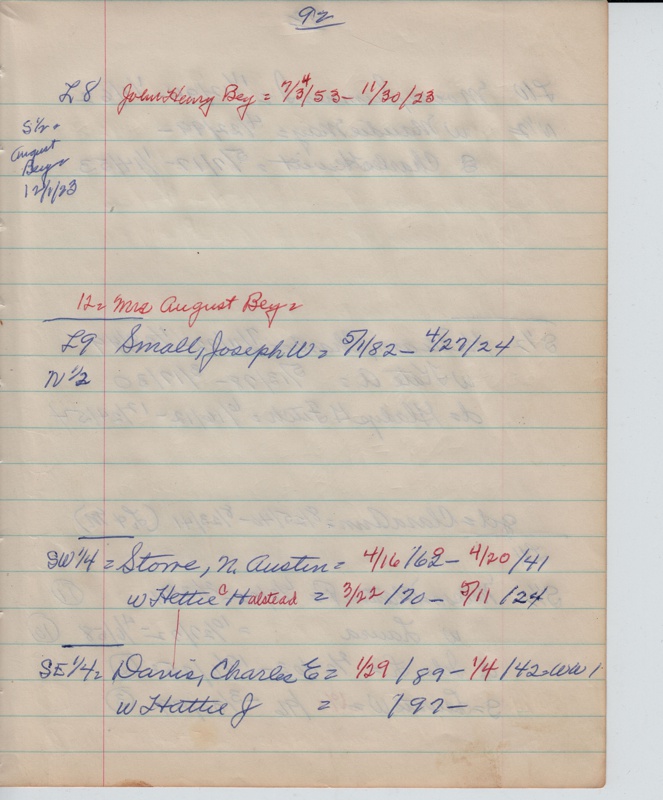 92
L 8 John Henry Bey = 7/3/53 - 11/30/23
4
S 1/2 =
August
Bey =
12/1/23
12 = Mrs August Bey =
L9 Small, Joseph W = 5/1/82 - 4/27/24
N 1/2
SW 1/4 = Stowe, N. Austin = 4/16/62 - 4/20/41
w Hettie C Halstead = 3/22/70 - 5/11/24
SE 1/4 = Davis, Charles E = 1/29/89 - 1/4/42 = WW 1
w Hattie J = /97 -